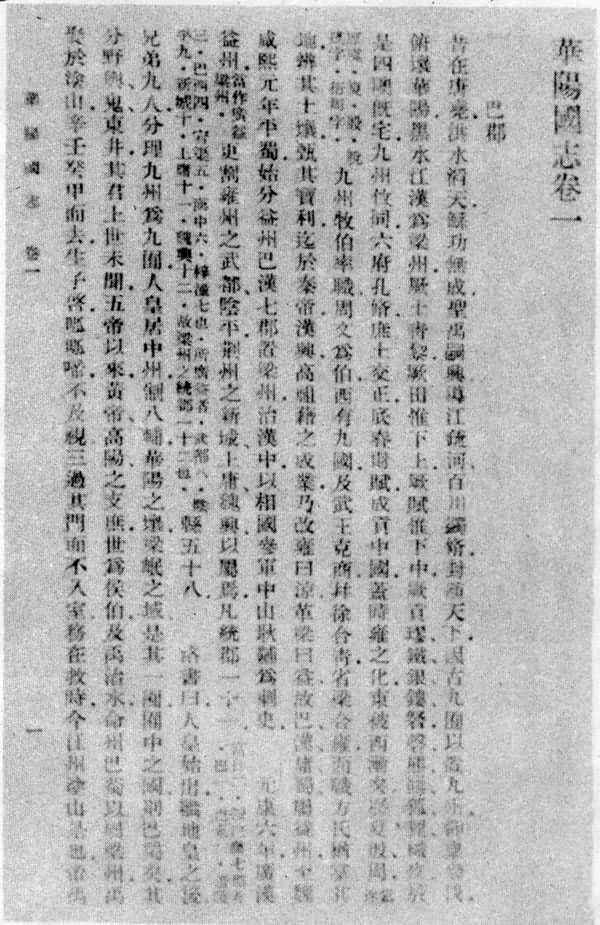 華陽國志卷一
巴郡
昔在唐堯洪水滔天鯀功無成聖禹嗣興導江疏河百川蠲脩封殖天下因古九囿以置九州仰稟參伐
俯壤華陽黑水江漢爲梁州厥土青黎厥田惟下上厥賦惟下中厥貢璆鐵銀鏤砮磬熊羆狐貍織皮於
是四隩既宅九州攸同六府孔脩庶土交正厎慎財賦成貢中國蓋時雍之化東被西漸矣歷夏殷周
九州牧伯率職周文爲伯西有九國及武王克商并徐合青省梁合雍而職方氏猶掌其
地辨其土壤甄其寶利迄於秦帝漢興高祖藉之成業乃改雍曰涼革梁曰益故巴漢庸蜀屬益州至魏
咸熙元年平蜀始分益州巴漢七郡置梁州治漢中以相國參軍中山耿黼爲刺史 元康六年廣漢
益州更割雍州之武都陰平荆州之新城上庸魏興以屬焉凡統郡一十一
三・巴西四・宕渠五・漢中六・梓潼七也・所廣益者・武都八・陰
平九・新城十・上庸十一・魏興十二・故梁州之統郡一十二也・縣五十八 洛書曰人皇始出繼地皇之後
兄弟九人分理九州爲九囿人皇居中州制八輔華陽之壤梁岷之域是其一囿囿中之國則巴蜀矣其
分野輿鬼東井其君上世未聞五帝以來黃帝高陽之支庶世爲侯伯及禹治水命州巴蜀以屬梁州禹
娶於塗山辛壬癸甲而去生子啓呱呱啼不及視三過其門而不入室務在救時今江州塗山是也帝禹
華陽國志 卷一
一